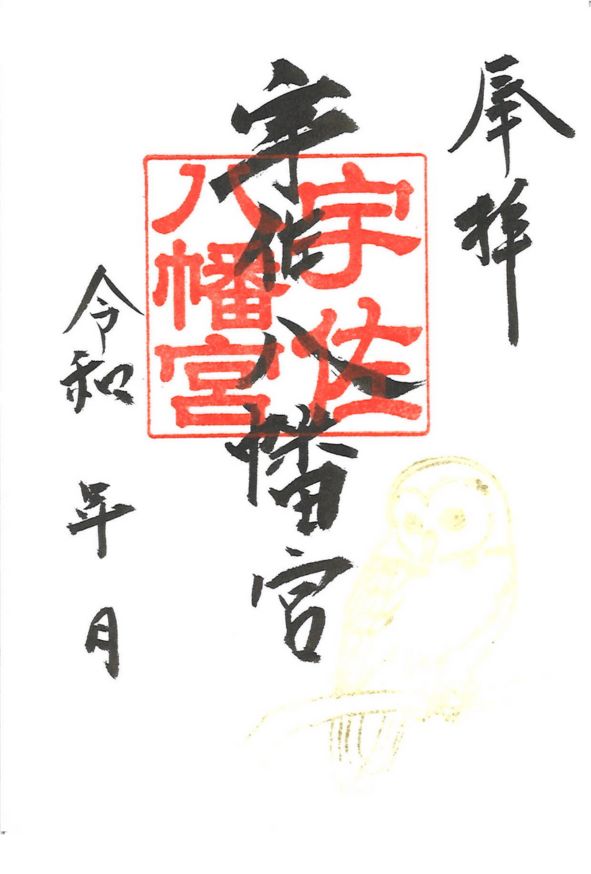 奉拝
宇佐八幡宮
宇佐
八幡宮
令和 年 月